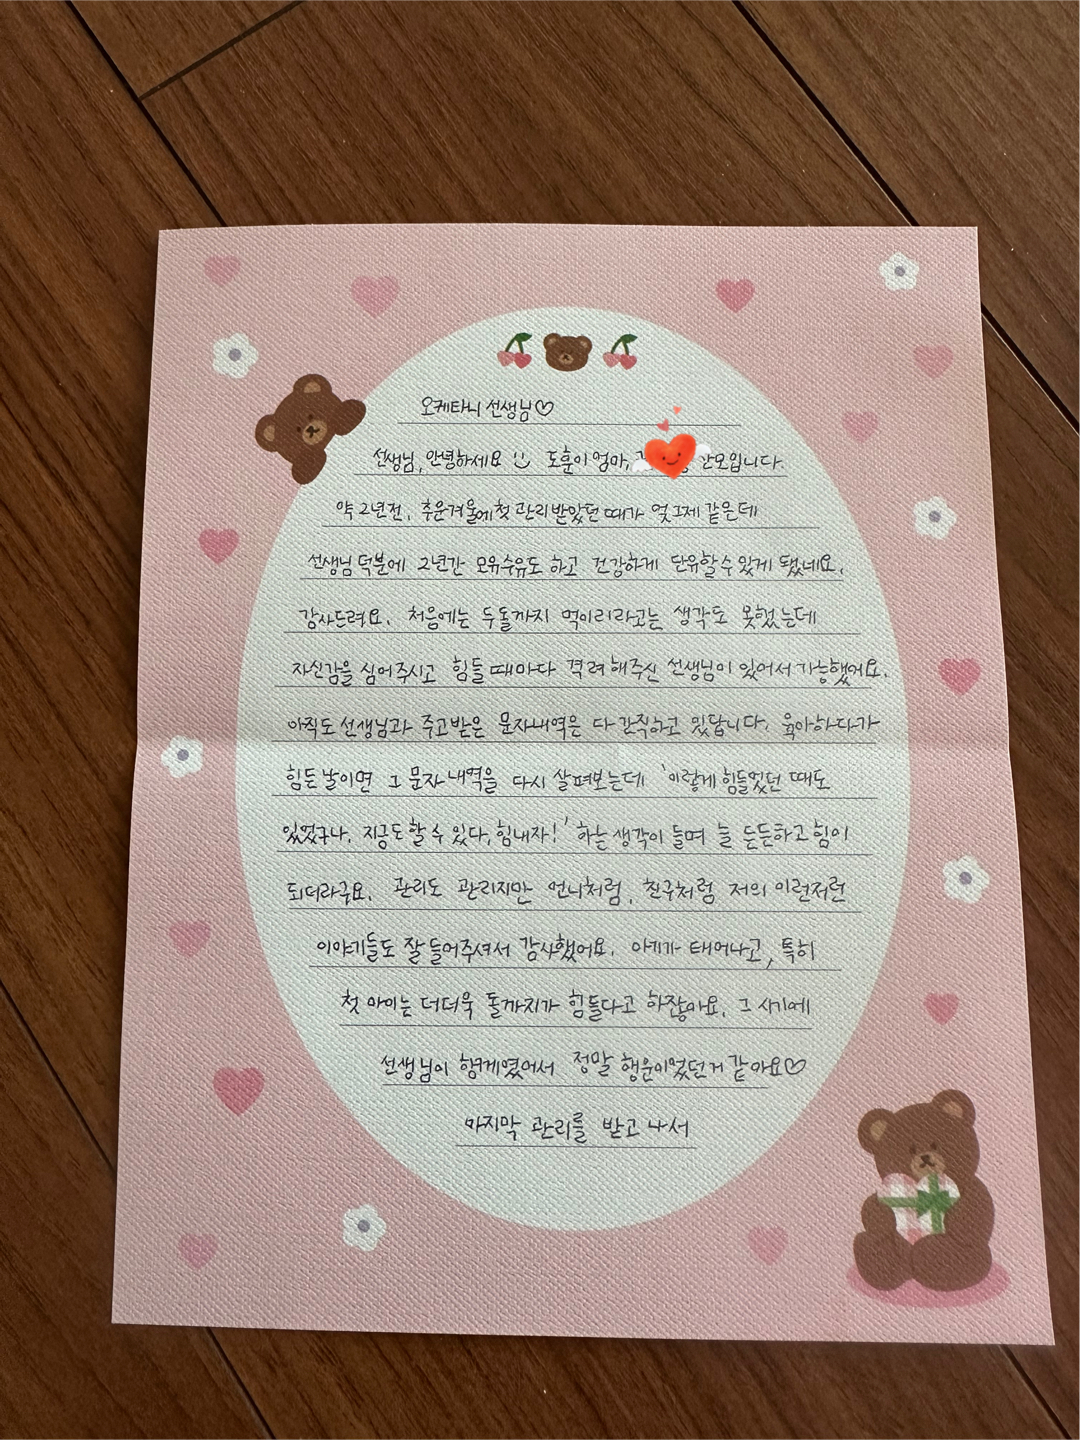 오케타니 선생님♡
선생님, 안녕하세요 :) 도훈이 엄마, 산모입니다.
약 2년전, 추운겨울에 첫 관리받았던 때가 엊그제 같은데
선생님 덕분에 2년간 모유수유도 하고 건강하게 단유할 수 있게 됐네요.
감사드려요. 처음에는 두돌까지 먹이리라고는 생각도 못했는데
자신감을 심어주시고 힘들 때마다 격려해주신 선생님이 있어서 가능했어요.
아직도 선생님과 주고받은 문자내역은 다 간직하고 있답니다. 육아하다가
힘든 날이면 그 문자 내역을 다시 살펴보는데 '이렇게 힘들었던 때도
있었구나. 지금도 할 수 있다, 힘내자!' 하는 생각이 들며 늘 든든하고 힘이
되더라구요. 관리도 관리지만 언니처럼, 친구처럼 저의 이런저런
이야기들도 잘 들어주셔서 감사했어요. 아기가 태어나고, 특히
첫 아이는 더더욱 돌까지가 힘들다고 하잖아요. 그 시기에
선생님이 함께였어서 정말 행운이었던거 같아요♡
마지막 관리를 받고 나서